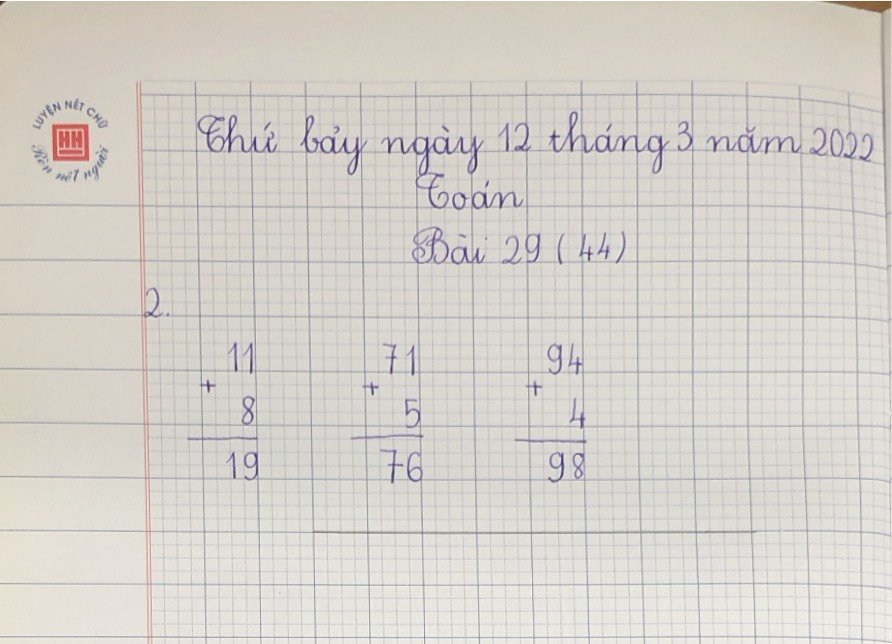 LUYỆN NÉT CHỮ
HH
Rèn nết người
Thứ bảy ngày 12 tháng 3 năm 2022
Toán
Bài 29 (44)
2.
11 71 94
+ + +
8 5 4
19 76 98